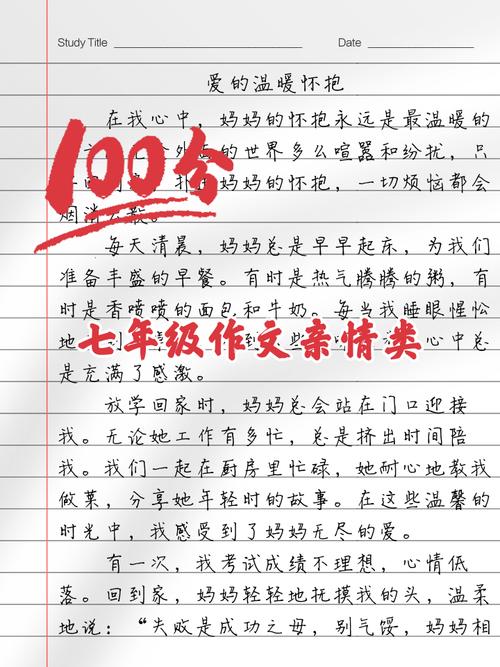 Study Title
Date
爱的温暖怀抱
在我心中，妈妈的怀抱永远是最温暖的
的世界多么喧嚣和纷扰，只
妈妈的怀抱，一切烦恼都会
烟消云散。
100分
每天清晨，妈妈总是早早起床，为我们
准备丰盛的早餐。有时是热气腾腾的粥，有
时是香喷喷的面包和牛奶。每当我睡眼惺忪
地
心中总
七年级作文亲情类
是充满了感激。
放学回家时，妈妈总会站在门口迎接
我。无论她工作有多忙，总是挤出时间陪
我。我们一起在厨房里忙碌，她耐心地教我
做菜，分享她年轻时的故事。在这些温馨的
时光中，我感受到了妈妈无尽的爱。
有一次，我考试成绩不理想，心情低
落。回到家，妈妈轻轻地抚摸我的头，温柔
地说：“失败是成功之母，别气馁，妈妈相